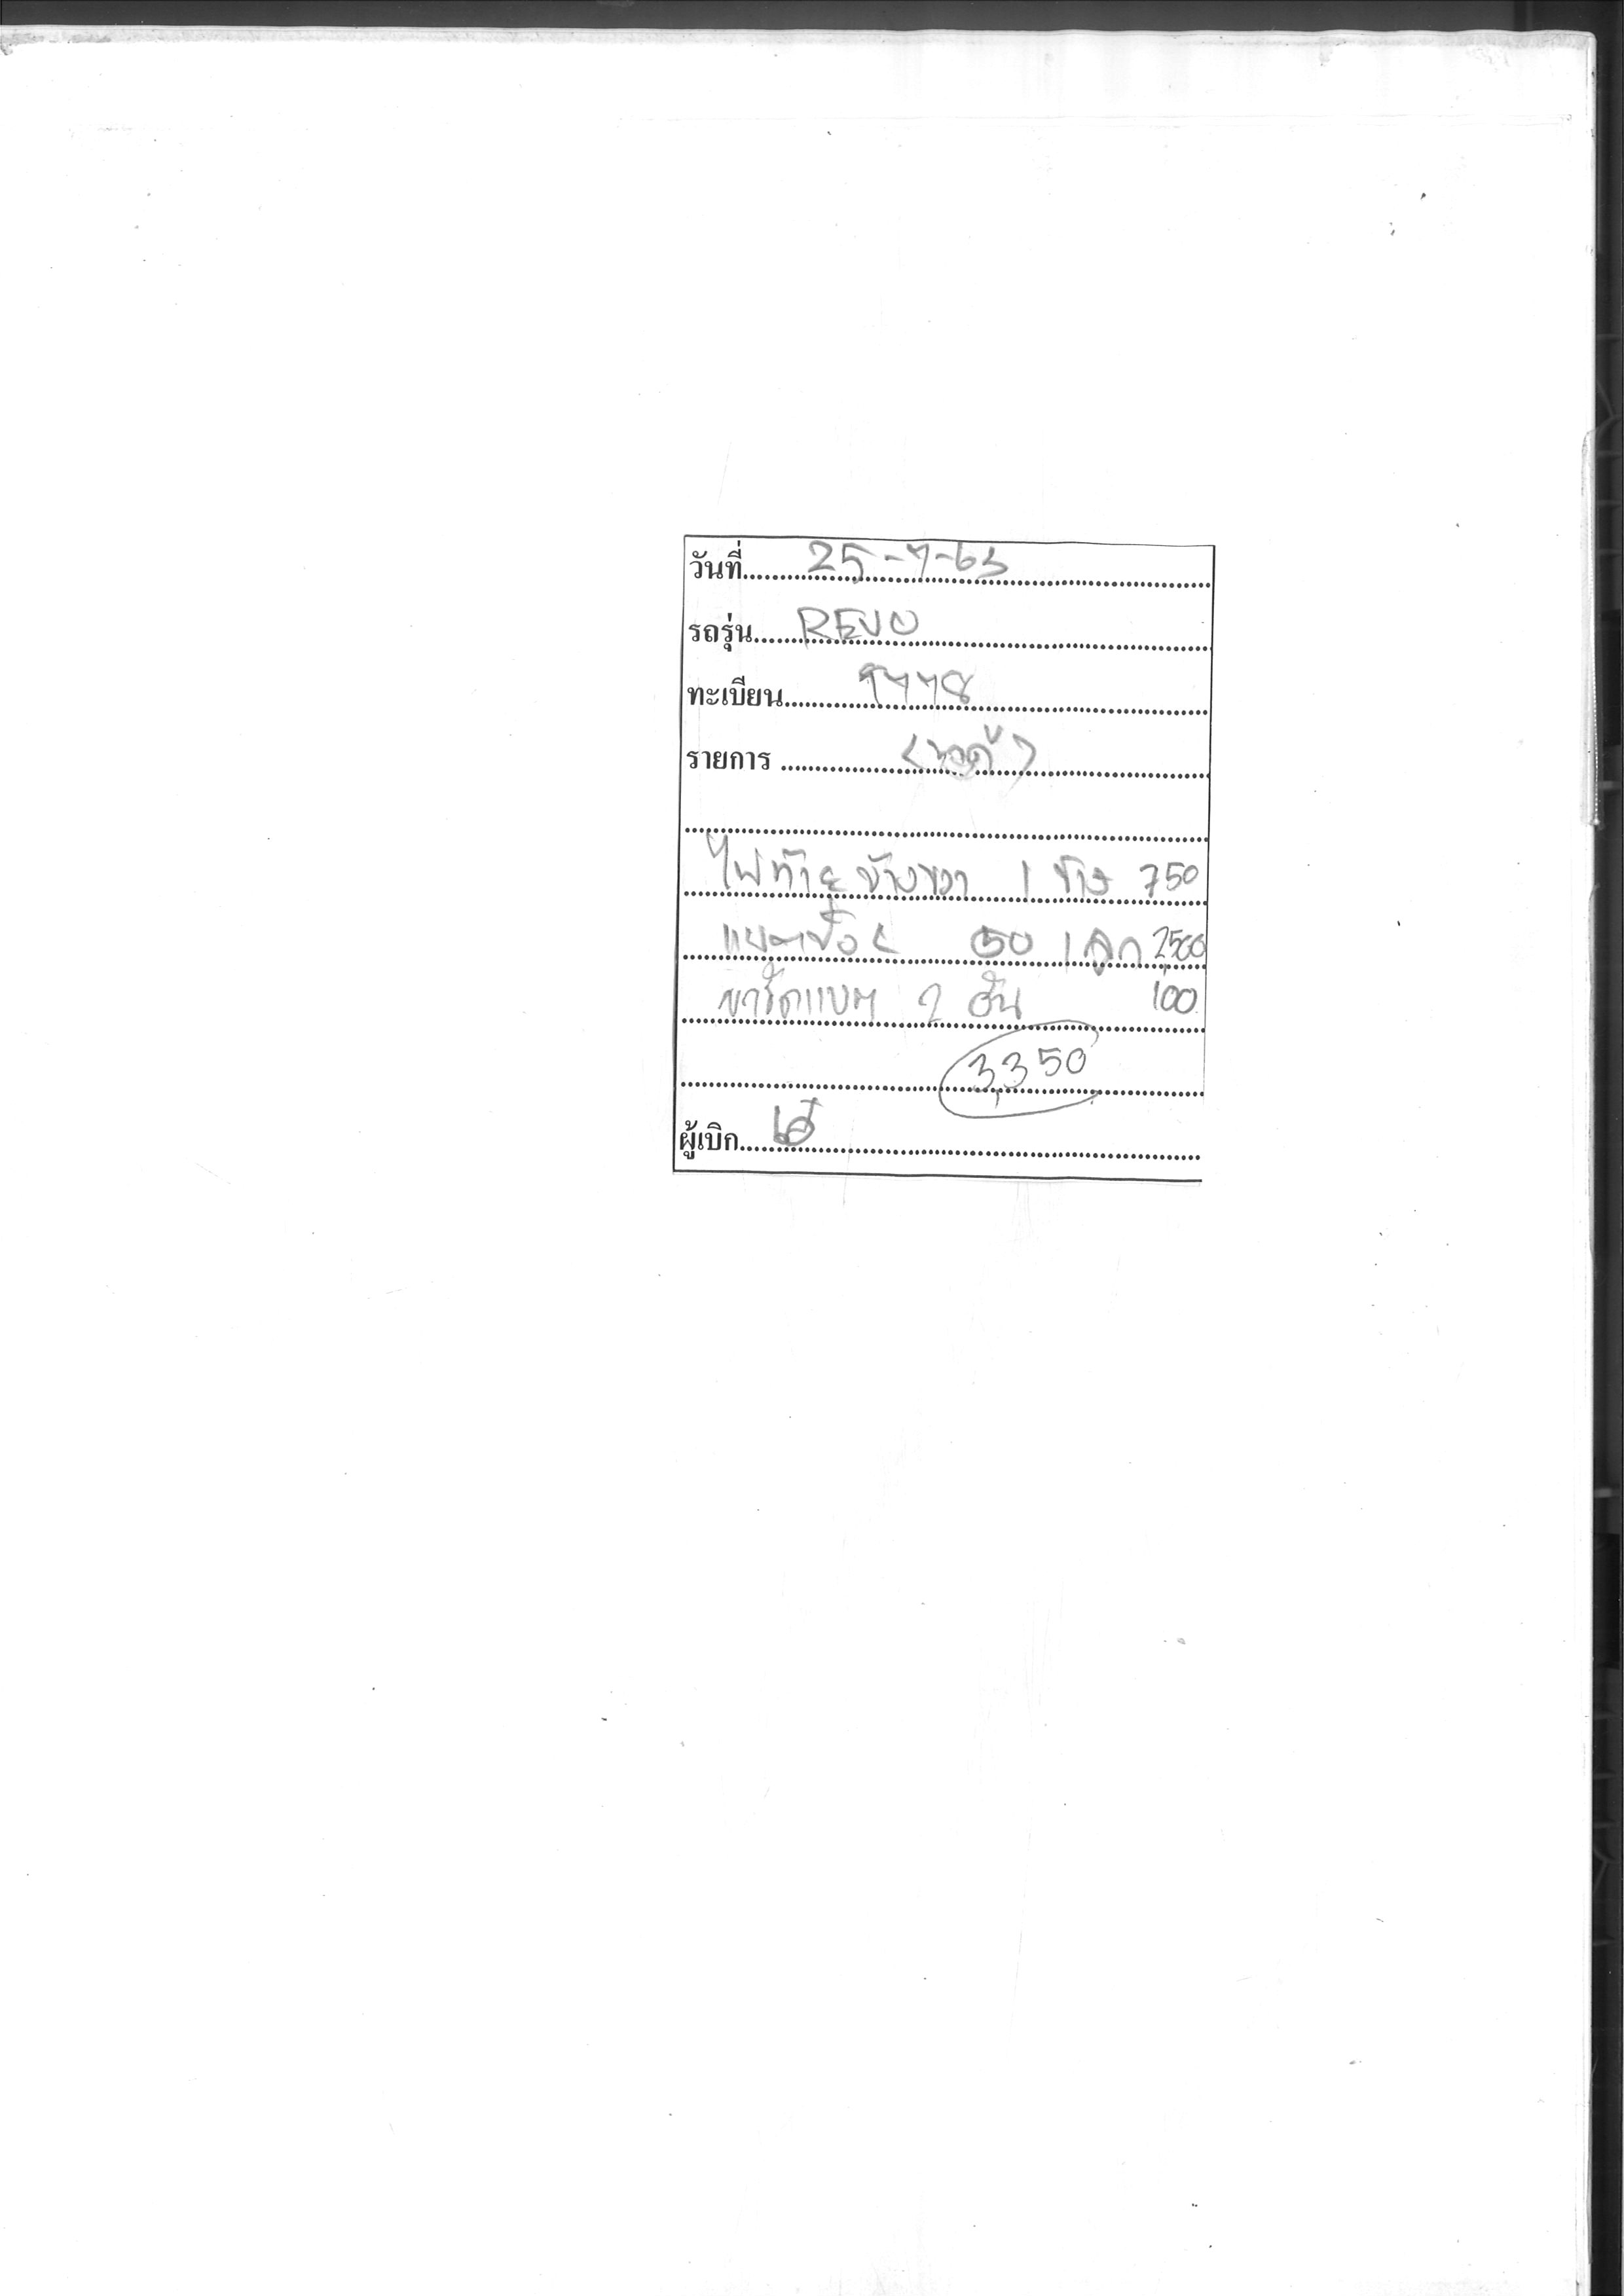 วันที่ 25-7-63
รถรุ่น REVO
ทะเบียน 9778
รายการ
ไฟท้าย ข้างขวา 1 ข้าง 750
แบตเตอรี่ 50 1 ลูก 2,500
ขารัดแบต 2 อัน 100
3,350
ผู้เบิก